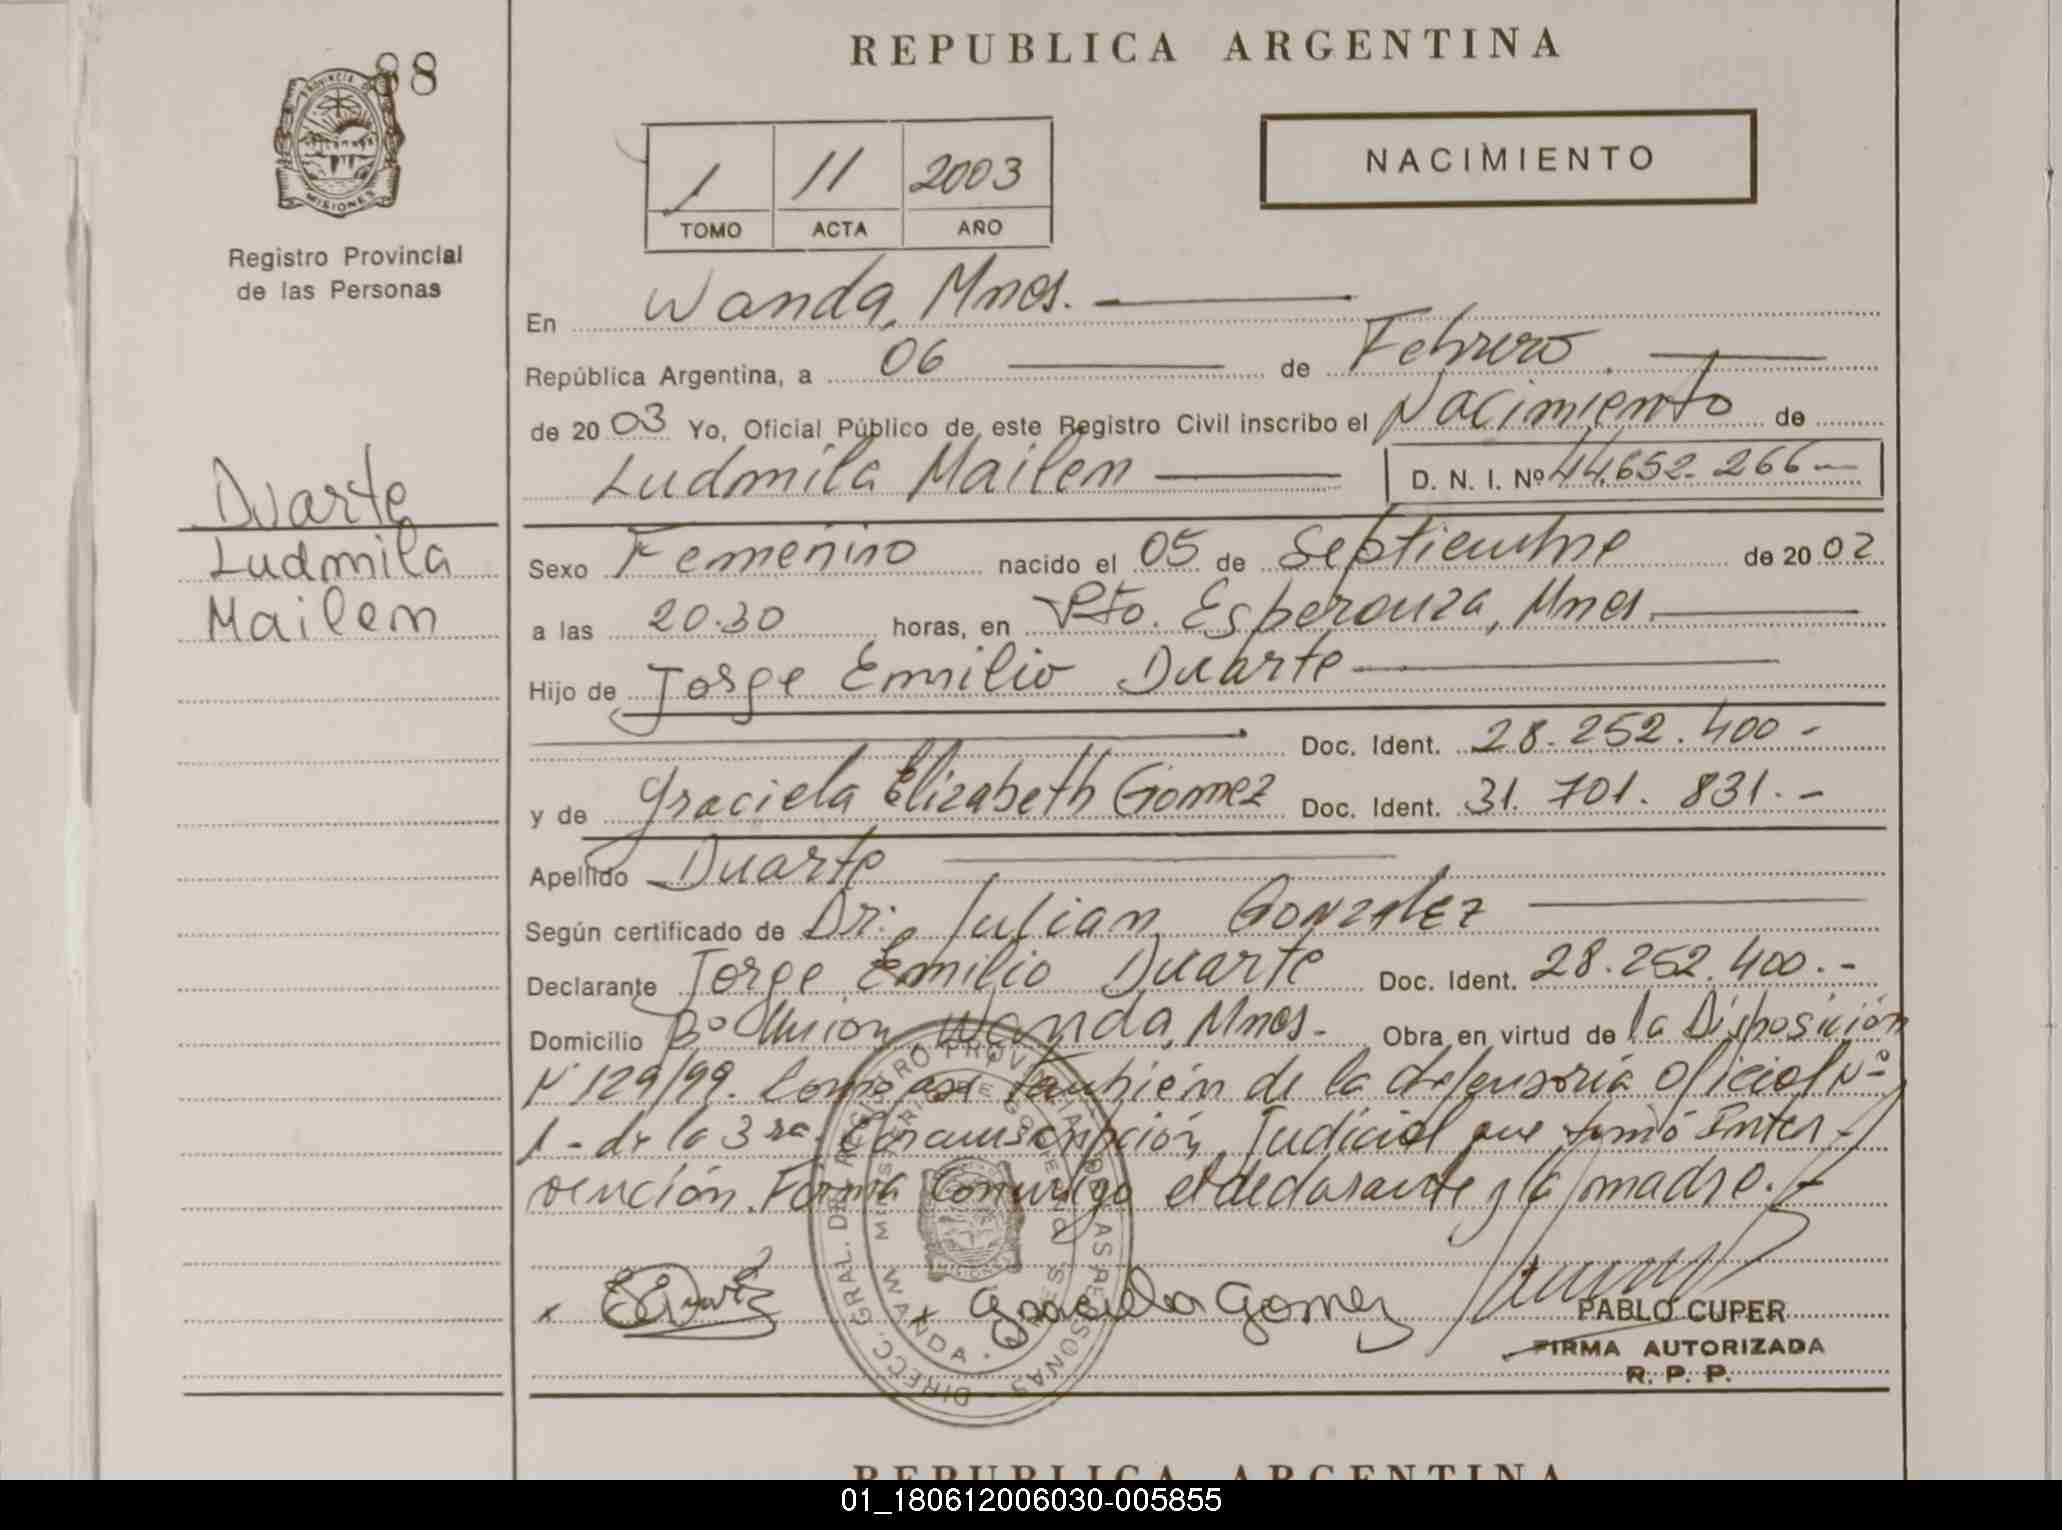 REPUBLICA ARGENTINA
88
PROVINCIA DE
MISIONES
Registro Provincial
de las Personas
1 11 2003
TOMO ACTA AÑO
NACIMIENTO
En Wanda, Mnes.
República Argentina, a 06 de Febrero
de 2003 Yo, Oficial Público de este Registro Civil inscribo el Nacimiento de
Ludmila Mailen D. N. I. Nº 44.652.266
Duarte
Ludmila
Mailen
Sexo Femenino nacido el 05 de Septiembre de 2002
a las 20.30 horas, en Pto. Esperanza, Mnes.
Hijo de Jorge Emilio Duarte
Doc. Ident. 28.252.400.-
y de Graciela Elizabeth Gomez Doc. Ident. 31.701.831.-
Apellido Duarte
Según certificado de Dr. Julian Gonzalez
Declarante Jorge Emilio Duarte Doc. Ident. 28.252.400.-
Domicilio Bº Unión, Wanda, Mnes. Obra en virtud de la Disposición
Nº 129/99. Como así también de la defensoría Oficial Nº
1 - de la 3ra. Circunscripción Judicial que tomó Inter-
vención. Firma Conmigo el declarante y la madre.-
DIRECC. GRAL. DEL REGISTRO PROVINCIAL DE LAS PERSONAS
MINISTERIO DE GOBIERNO
WANDA - MNES
x x Graciela Gomez
PABLO CUPER
FIRMA AUTORIZADA
R. P. P.
REPUBLICA ARGENTINA
01_180612006030-005855